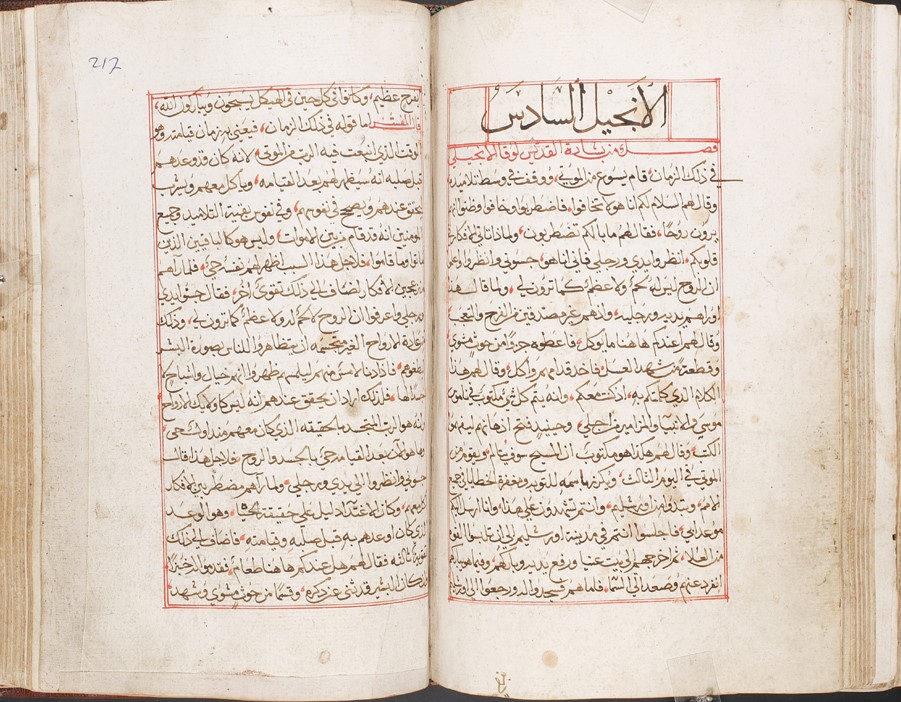 الانجيل السادس
فصل من بشارة القديس لوقا الانجيلي
في ذلك الزمان، قام يسوع من الموتى، ووقف في وسط تلاميذه
وقال لهم السلام لكم انا هو لا تخافوا، فاضطربوا وخافوا وظنوا انهم
يرون روحًا، فقال لهم ما بالكم تضطربون، ولماذا تاتي الافكار
قلوبكم، انظروا يدي ورجلي فاني انا هو، جسوني وانظروا
ان الروح ليس له لحم ولا عظم كما ترون لي، ولما قال هذا
اوراهم يديه ورجليه، واذ هم غير مصدقين من الفرح والتعجب
وقال لهم اعندكم هاهنا ما يوكل، فاعطوه جزوًا من حوت مشوي
وقطعة من شهد العسل، فاخذ قدامهم واكل، وقال لهم هذا
الكلام الذي كلمتكم به، اذ كنت معكم، وانه يتم كل شي مكتوب في ناموس
موسى والانبيا والمزامير من اجلي، وحينيذٍ فتح اذهانهم ليفهموا
الكتب، وقال لهم هكذا هو مكتوب ان المسيح سوف يتالم، ويقوم من
الموتى في اليوم الثالث، ويكرز باسمه للتوبة ومغفرة الخطايا في جميع
الامم، ويبتدوا من اورشليم، وانتم تشهدون علي هذا، وانا ارسل اليكم
موعد ابي، فاجلسوا انتم في مدينة اورشليم الي ان تلبسوا القوة
من العلا، ثم اخرجهم الي بيت عنيا ورفع يديه وباركهم، وفيما هو يباركهم
انفرد عنهم وصعد الي السما، فاما هم فسجدوا له ورجعوا الي اورشليم
217
بفرح عظيم، وكانوا في كل حين في الهيكل يسبحون ويباركون الله،
قال المفسر اما قوله في ذلك الزمان، فيعني به زمان قيامته وهو
الوقت الذي انبعث فيه الرب من الموتى، لانه كان قد وعدهم
قبل صلبه انه سيظهر لهم بعد القيامه، وياكل معهم ويشرب
يحقق عندهم ويصحح في نفوسهم، وفي نفوس بقية التلاميذ وجميع
المومنين انه قد قام من بين الاموات، وليس هو كالباقيين الذين
ماتوا وما قاموا، فلاجل هذا السبب اظهر لهم نفسه حي، فلما رآهم
منزعجين الافكار اضاف الي ذلك تقوى اخر، فقال جسوا يدي
ورجلي واعرفوا ان الروح لا لحم له ولا عظم كما ترون لي، وذلك
من عادة الارواح الغير متجسمه ان يتظاهروا للناس بصورة البشر
فاذا دنا لامس منهم او لمسهم ظهروا انهم خيال واشباح لا
جسدانا، فلذلك اراد ان يحقق عندهم انه ليس كاوليك الارواح
وانه هو الرب المتجسد بالحقيقه الذي كان معهم منذ اول حي
وها هو الان بعد القيامه حي بالجسد والروح، فلاجل هذا قال
جسوني وانظروا الي يدي ورجلي، ولما رآهم مضطربين الافكار
وكان الاغتذا دليل علي حقيقة الحياة، وهو الوعد
الذي كان اوعدهم به قبل صلبه وقيامته، فاضاف الي ذلك
تقوية ثالثه، فقال لهم هل عندكم هاهنا طعام، فقدموا له خبزًا
كان البشير قد ثنى عن ذكره، وقسمًا من حوت مشوي وشهد